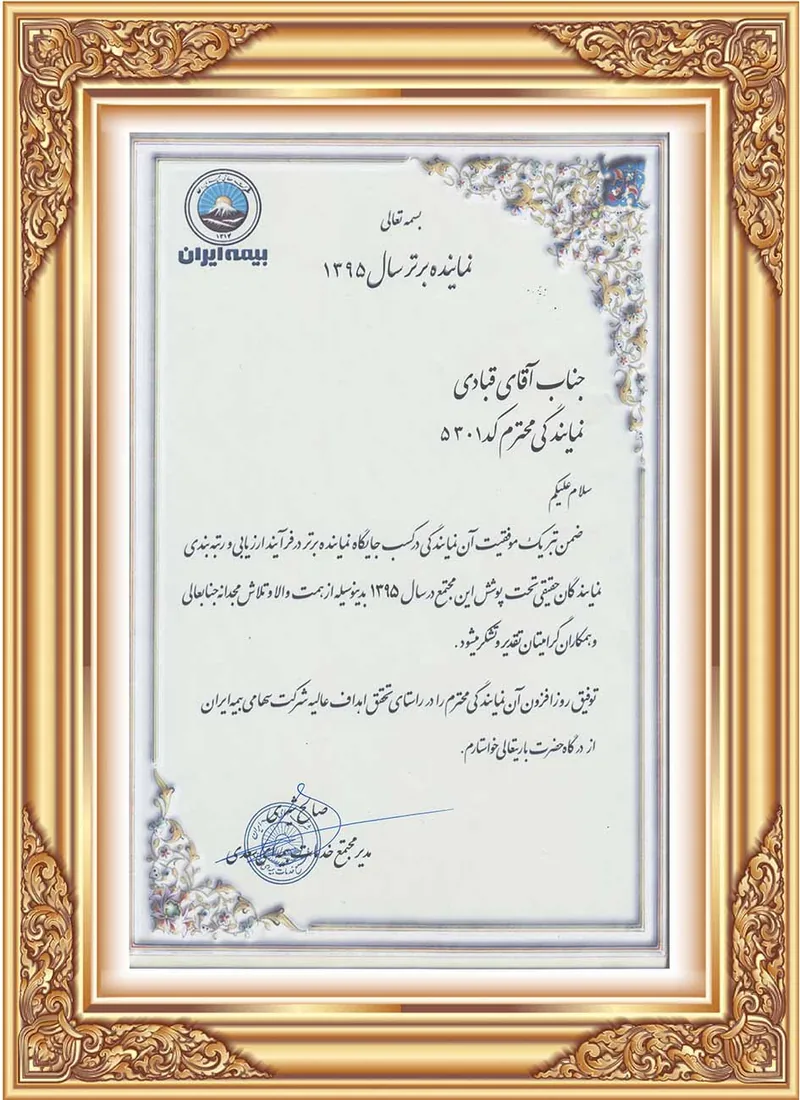 بسمه تعالی
نماینده برتر سال ۱۳۹۵
۱۳۱۴
بیمه ایران
جناب آقای قبادی
نمایندگی محترم کد ۵۳۰۱
سلام علیکم
ضمن تبریک موفقیت آن نمایندگی در کسب جایگاه نماینده برتر در فرآیند ارزیابی و رتبه بندی
نمایندگان حقیقی تحت پوشش این مجتمع در سال ۱۳۹۵ بدینوسیله از همت والا و تلاش مجدانه جنابعالی
و همکاران گرامیتان تقدیر و تشکر میشود.
توفیق روزافزون آن نمایندگی محترم را در راستای تحقق اهداف عالیه شرکت سهامی بیمه ایران
از درگاه حضرت باریتعالی خواستارم.
صالح شیری
مدیر مجتمع خدمات